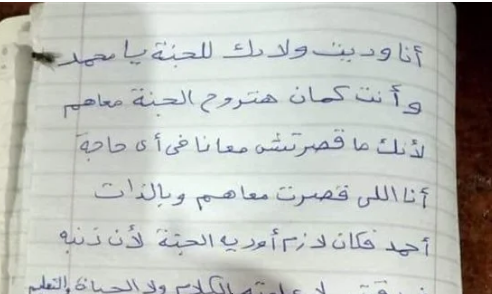 أنا وديت ولادك للجنة يا محمد
وأنت كمان هتروح الجنة معاهم
لأنك ما قصرتش معانا فى أى حاجة
أنا اللى قصرت معاهم وبالذات
أحمد فكان لازم أوديه الجنة لأن ذنبه
الكلام ولا الحياة والتعليم